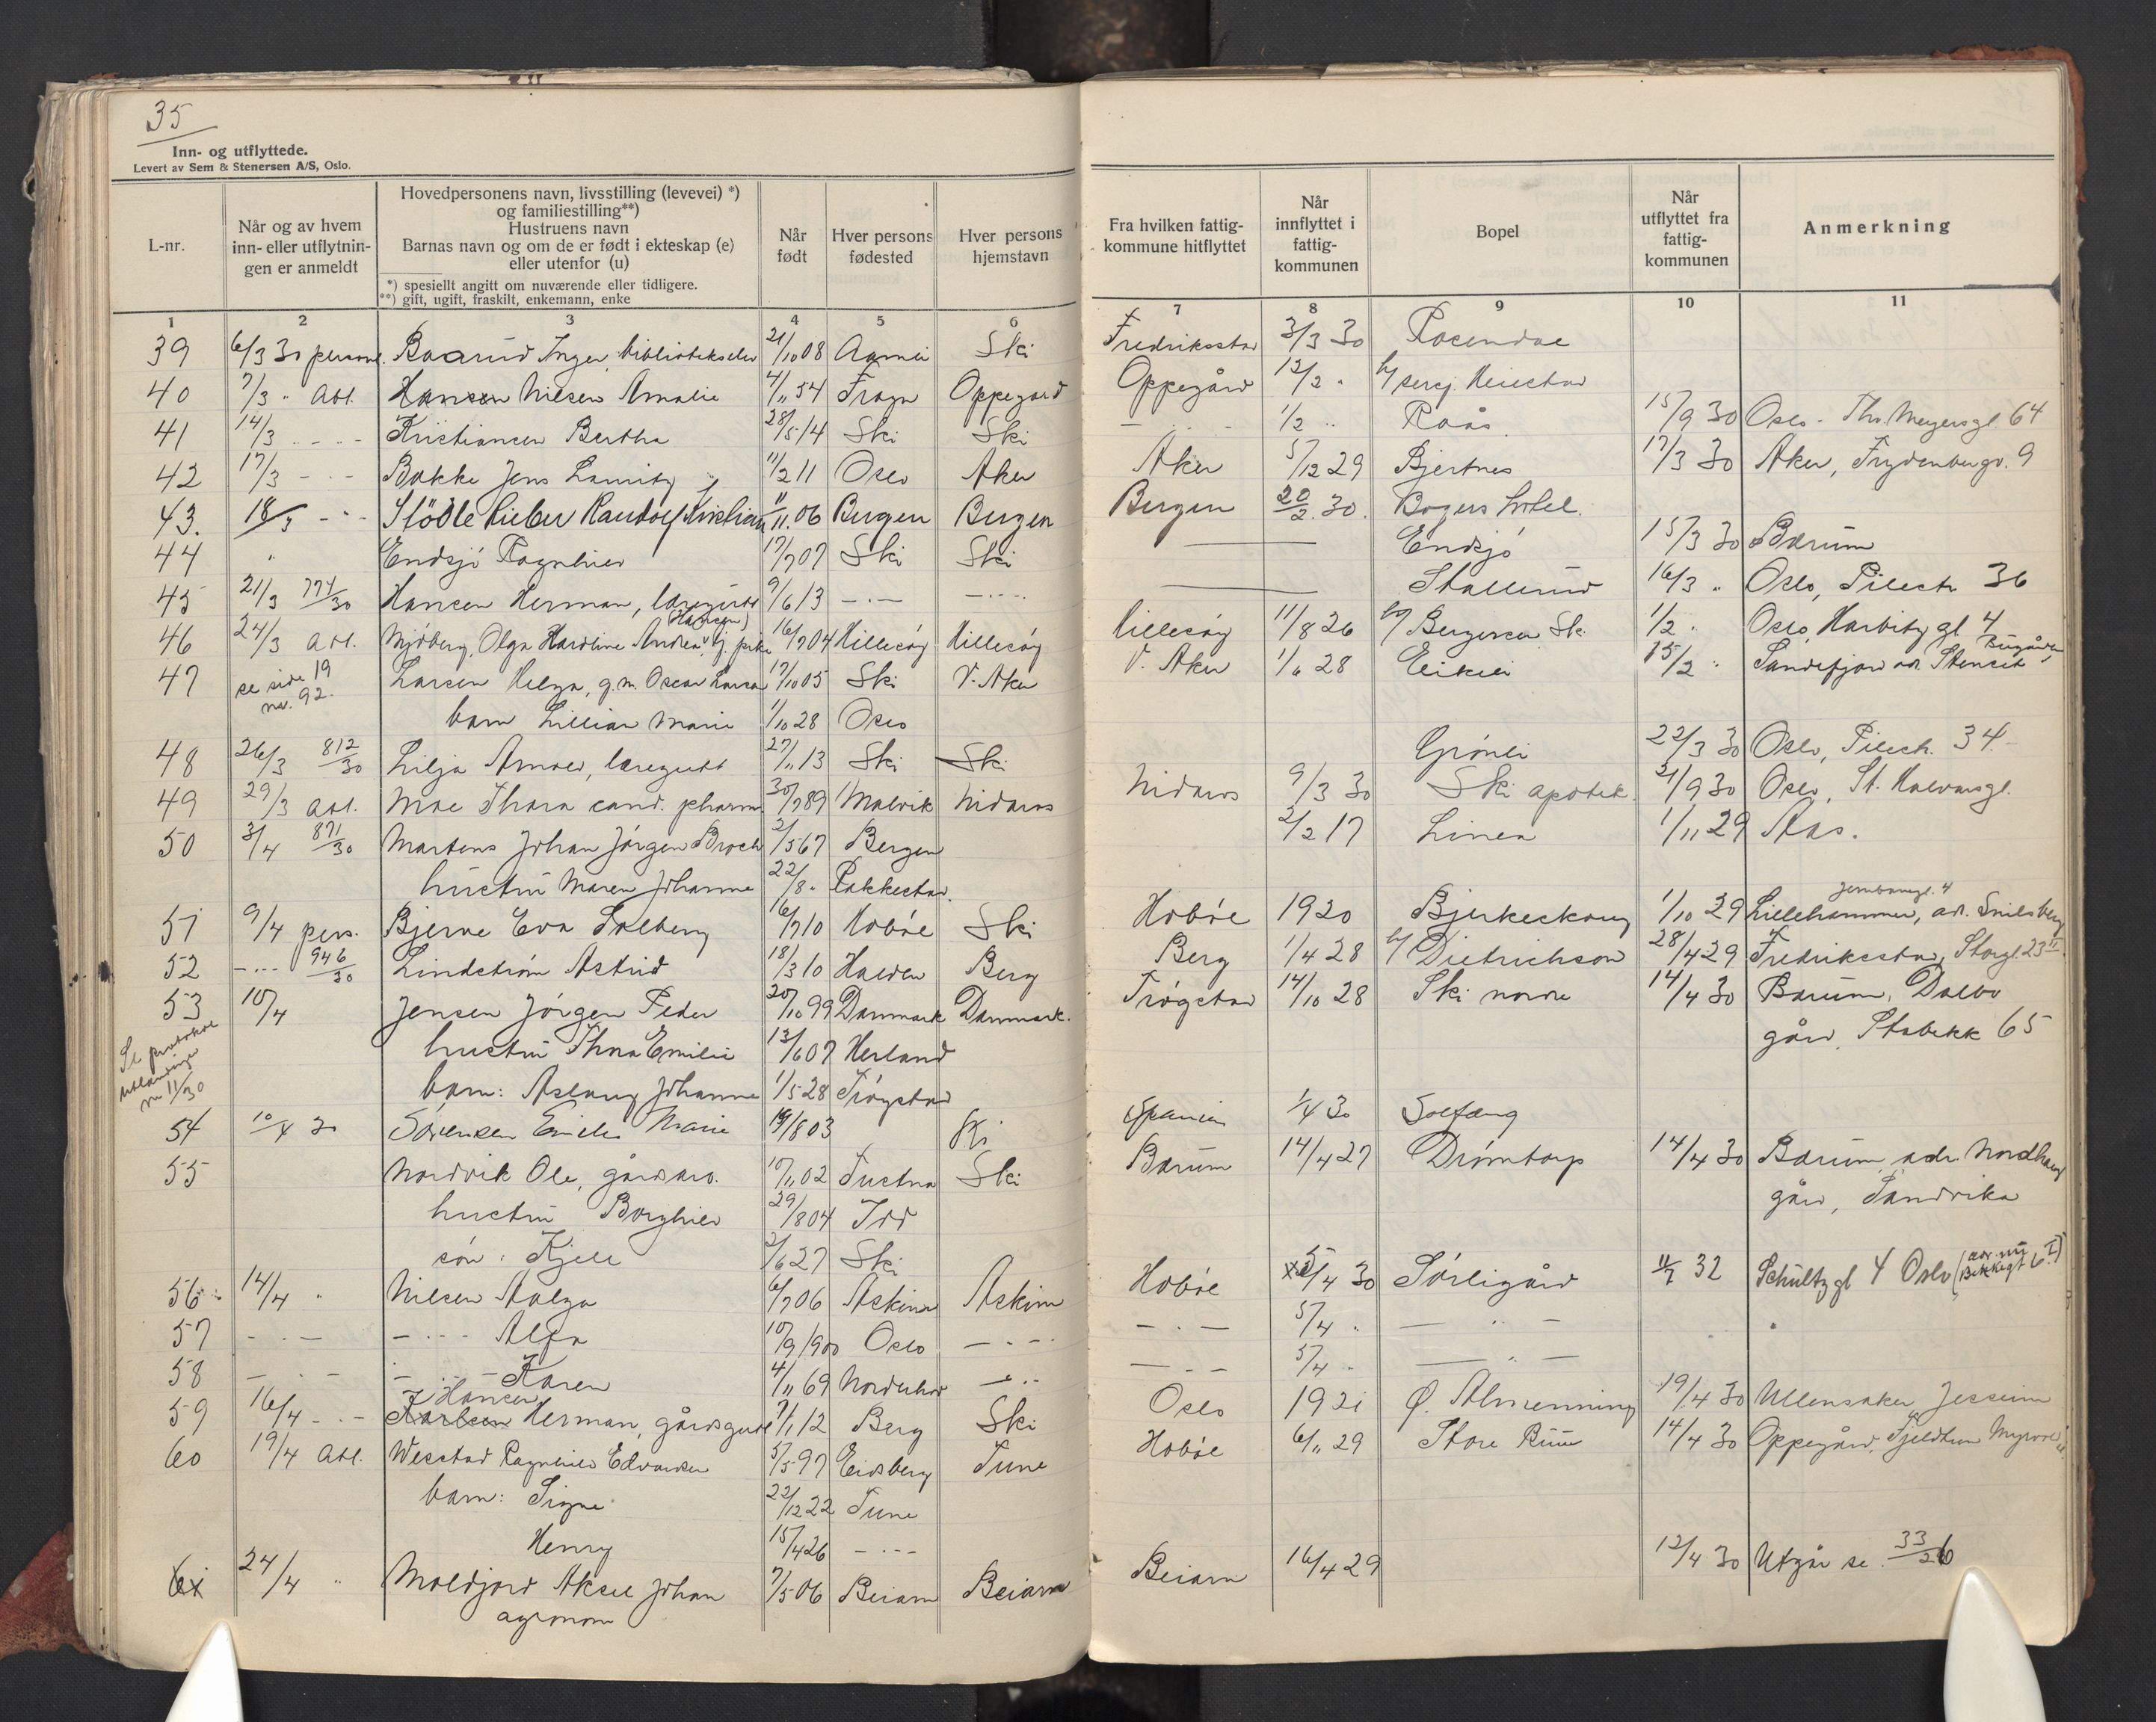 35
Inn- og utflyttede.
Levert av Sem & Stenersen A/S, Oslo.
L-nr.
Når og av hvem inn- eller utflytnin- gen er anmeldt
Hovedpersonens navn, livsstilling (levevei) *)
og familiestilling**)
Hustruens navn
Barnas navn og om de er født i ekteskap (e)
eller utenfor (u)
*) spesiellt angitt om nuværende eller tidligere.
**) gift, ugift, fraskilt, enkemann, enke
Når født
Hver persons fødested
Hver persons hjemstavn
Fra hvilken fattig- kommune hitflyttet
Når innflyttet i fattig- kommunen
Bopel
Når utflyttet fra fattig- kommunen
Anmerkning
1 2 3 4 5 6 7 8 9 10 11
39 6/3 30 personl. Baarud Inger, bibliotekselev 21/10 08 Ski Fredrikstad 3/3 30
40 7/3 " Hansen Nilsen Amalie 4/11 54 Frogn Oppegård Oppegård 12/2 "
41 14/3 - - - Kristiansen Bertha 28/5 14 Ski Ski 1/2 " Raås 15/9 30 Oslo - Th. Meyersgt. 64
42 17/3 - - - Bakke Jens Lauritz 11/2 11 Oslo Aker Aker 5/12 29 Bjertnes 17/3 30 Aker, Frydenbergv. 9
43. 18/3 - " - Rieber Randolf Kristian 11/11. 06 Bergen Bergen Bergen 20/2. 30. Bogers hotel.
44 " Endsjö Ragnhild 17/7 07 Ski Ski — Endsjö 15/3 30 Bærum
45 21/3 774/30 Hansen Herman, læregutt 9/6 13 - . - - . - — Stallerud 16/3 " Oslo, Pilestr. 36
46 24/3 Mjöberg, Olga Hardline Andrea (Hansen) 16/7 04 Hillesöy Hillesöy Hillesöy 11/8 26 h/ Bergersen Ski 1/2 " Oslo, Harbitz gt. 4
47 se side 19 nr. 92. Larsen Helga, g.m. Oscar Larsen 17/10 05 Ski V. Aker V. Aker 1/6 28 15/2 " Sandefjord
barn Lillian Marie 1/10 28 Oslo
48 26/3 812/30 Lilja Arnold, læregutt 27/11 13 Ski Ski Grönli 22/3 30 Oslo, Pilestr. 34.
49 29/3 Moe Thora cand. pharm. 30/7 89 Malvik Nidaros Nidaros 9/3 30 Ski apotek. 21/9 30 Oslo, St. Halvardsgt.
50 3/4 871/30 Martens Johan Jörgen Broch 2/5 67 Bergen 2/2 17 Linea 1/11 29 Aas.
hustru Maren Johanne 22/8 " Rakkestad.
51 9/4 pers. Bjerne Eva Solberg 16/7 10 Hoböl Ski Hoböl 1920 Bjerkeskaug 1/10 29 Lillehammer, ad. Snilsberg
Jernbanegt. 4
52 - . . . 946/30 Lindström Astrid 18/3 10 Halden Berg Berg 1/4 28 h/ Dietrichson 28/4 29 Fredrikstad, Storgt. 23 II
53 10/4 Jensen Jörgen Peder 20/10 99 Danmark Danmark. Trögstad 14/10 28 Ski nordre 14/4 30 Bærum, Dalbo
Se protokol utlendinge nr 11/30
hustru Thora Emilie 13/6 07 Herland gård, Stabekk 65
barn: Aslaug Johanne 1/5 28 Trögstad
54 10/4 30 Sörensen Emilie Marie 19/8 03 Ski Spanien 1/4 30 Solfang
55 Nordvik Ole, gårdsarb. 10/11 02 Tustna Ski Bærum 14/4 27 Drömtorp 14/4 30 Bærum adr. Nordhaug
hustru Borghild 29/8 04 Idd gård, Sandvika
sön: Kjell 2/6 27 Ski
56 14/4 " Nilsen Aalga 6/7 06 Askim Askim Hoböl 5/4 30 Sörligård 11/7 32 Schultzgt 4 Oslo (adr. nu Bekkegt 6 I)
57 - . - - . . - Alfa 10/9 1900 Oslo - . - . - . - 5/4 " — " -
58 - . - . - - . . - Karen 4/11 69 Norderhov - . . - - - 5/4 " — " —
59 16/4 - . - Karlsen Hansen Herman, gårdsgutt 7/1 12 Berg Ski Oslo 1921 Ö. Almenning 19/4 30 Ullensaker Jessheim
60 19/4 Wesstad Ragnhild Edvardsen 5/5 97 Eidsberg Tune Hoböl 6/11 29 Store Ruud 14/4 30 Oppegård, Fjeldheim Myrvold
barn: Signe 22/12 22 Tune
Henry 15/4 26 - . - -
61 24/4 " Moldjord Aksel Johan 7/5 06 Beiarn Beiarn Beiarn 16/4 29 12/4 30 Utgår se. 33/26
agronom